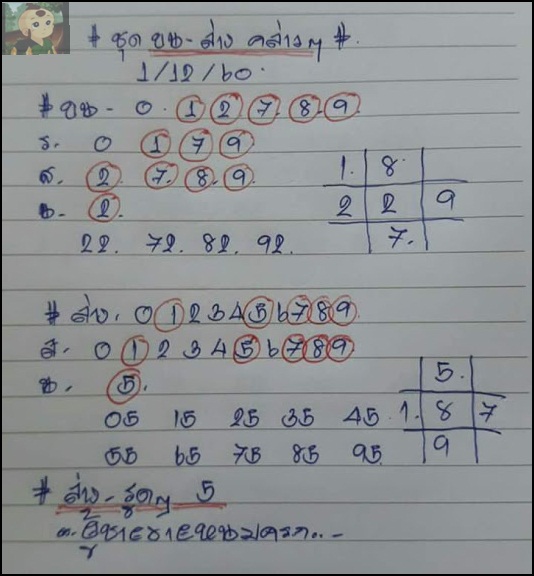 # ชุด บน - ล่าง คล่าวๆ #.
1/12/60.
# บน - 0. 1 2 7. 8. 9
ร. 0 1 7 9
ส. 2. 7. 8. 9.
น. 2.
22. 72. 82. 92.
1. 8.
2 2 9
7.
# ล่าง. 0 1 2 3 4 5 6 7 8 9
ส. 0 1 2 3 4 5 6 7 8 9
น. 5.
05 15 25 35 45
55 65 75 85 95.
5.
1. 8 7
9
# ล่าง - รูดๆ 5